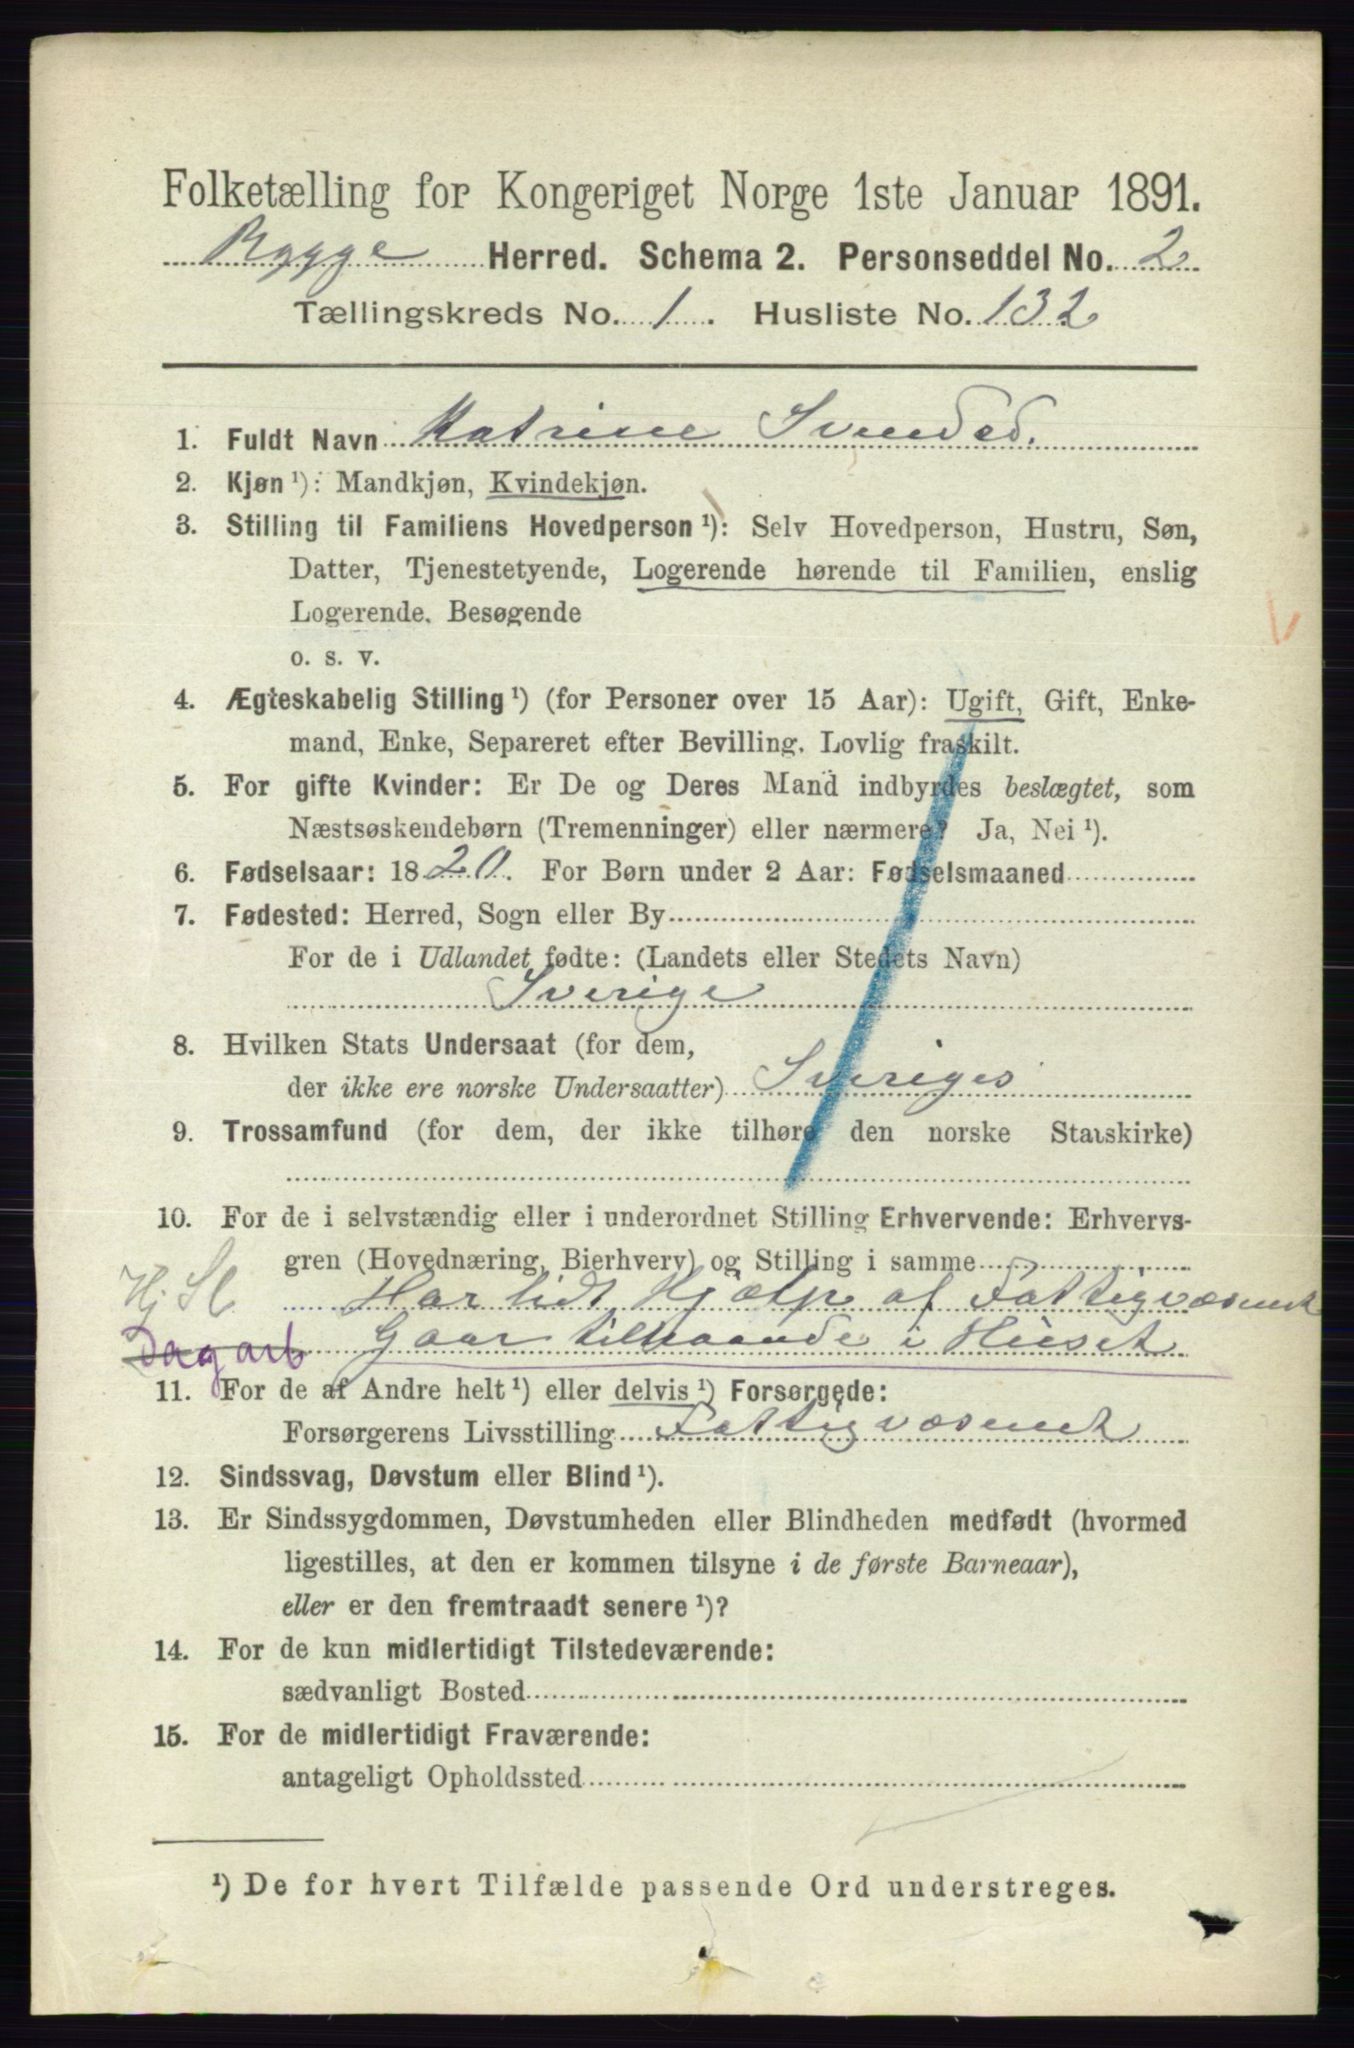 Folketælling for Kongeriget Norge 1ste Januar 1891.
Rygge Herred. Schema 2. Personseddel No. 2
Tællingskreds No. 1. Husliste No. 132
1. Fuldt Navn Katrine Svendsd.
2. Kjøn ¹): Mandkjøn, Kvindekjøn.
3. Stilling til Familiens Hovedperson ¹): Selv Hovedperson, Hustru, Søn,
Datter, Tjenestetyende, Logerende hørende til Familien, enslig
Logerende, Besøgende
o. s. v.
4. Ægteskabelig Stilling ¹) (for Personer over 15 Aar): Ugift, Gift, Enke-
mand, Enke, Separeret efter Bevilling, Lovlig fraskilt.
5. For gifte Kvinder: Er De og Deres Mand indbyrdes beslægtet, som
Næstsøskendebørn (Tremenninger) eller nærmere? Ja, Nei ¹).
6. Fødselsaar: 1820. For Børn under 2 Aar: Fødselsmaaned
7. Fødested: Herred, Sogn eller By
For de i Udlandet fødte: (Landets eller Stedets Navn)
Sverige
8. Hvilken Stats Undersaat (for dem,
der ikke ere norske Undersaatter) Sveriges
9. Trossamfund (for dem, der ikke tilhøre den norske Statskirke)
10. For de i selvstændig eller i underordnet Stilling Erhvervende: Erhvervs-
gren (Hovednæring, Bierhverv) og Stilling i samme
Hj. Sl Har lidt Hjælp af Fattigvæsenet
Dagarb Gaar tilhaande i Huset
11. For de af Andre helt ¹) eller delvis ¹) Forsørgede:
Forsørgerens Livsstilling Fattigvæsenet
12. Sindssvag, Døvstum eller Blind ¹).
13. Er Sindssygdommen, Døvstumheden eller Blindheden medfødt (hvormed
ligestilles, at den er kommen tilsyne i de første Barneaar),
eller er den fremtraadt senere ¹)?
14. For de kun midlertidigt Tilstedeværende:
sædvanligt Bosted
15. For de midlertidigt Fraværende:
antageligt Opholdssted
¹) De for hvert Tilfælde passende Ord understreges.